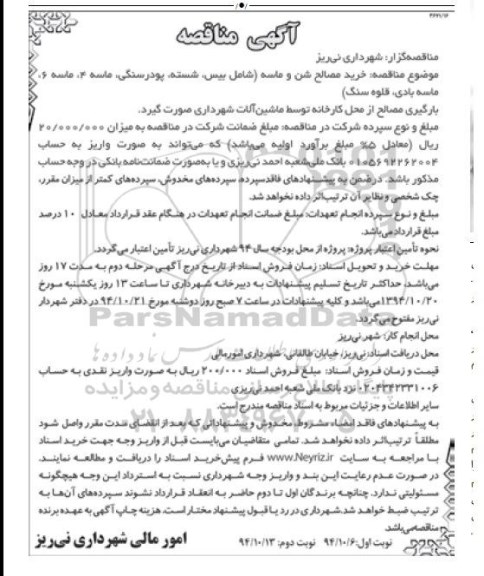 ۳۶۶۱/۱۶
آگهی مناقصه
مناقصه‌گزار: شهرداری نی‌ریز
موضوع مناقصه: خرید مصالح شن و ماسه (شامل بیس، شسته، پودرسنگی، ماسه ۴، ماسه ۶،
ماسه بادی، قلوه سنگ)
بارگیری مصالح از محل کارخانه توسط ماشین‌آلات شهرداری صورت گیرد.
مبلغ و نوع سپرده شرکت در مناقصه: مبلغ ضمانت شرکت در مناقصه به میزان ۲۰/۰۰۰/۰۰۰
ریال (معادل ۵٪ مبلغ برآورد اولیه می‌باشد) که می‌تواند به صورت واریز به حساب
۰۱۰۵۶۹۲۲۶۲۰۰۴ بانک ملی‌شعبه احمد نی‌ریزی و یا به‌صورت ضمانت‌نامه بانکی در وجه حساب
مذکور باشد. در ضمن به پیشنهادهای فاقد سپرده، سپرده‌های مخدوش، سپرده‌های کمتر از میزان مقرر،
چک شخصی و نظایر آن ترتیب اثر داده نخواهد شد.
مبلغ و نوع سپرده انجام تعهدات: مبلغ ضمانت انجام تعهدات در هنگام عقد قرارداد معادل ۱۰ درصد
مبلغ قرارداد می‌باشد.
نحوه تأمین اعتبار پروژه: پروژه از محل بودجه سال ۹۴ شهرداری نی‌ریز تأمین اعتبار می‌گردد.
مهلت خرید و تحویل اسناد: زمان فروش اسناد از تاریخ درج آگهی مرحله دوم به مدت ۱۷ روز
می‌باشد، حداکثر تاریخ تسلیم پیشنهادات به دبیرخانه شهرداری تا ساعت ۱۳ روز یکشنبه مورخ
۱۳۹۴/۱۰/۲۰ می‌باشد و کلیه پیشنهادات در ساعت ۷ صبح روز دوشنبه مورخ ۹۴/۱۰/۲۱ در دفتر شهردار
نی‌ریز مفتوح می‌گردد.
محل انجام کار: شهر نی‌ریز
محل دریافت اسناد: نی‌ریز، خیابان طالقانی، شهرداری امور مالی
قیمت و زمان فروش اسناد: مبلغ فروش اسناد ۲۰۰/۰۰۰ ریال به صورت واریز نقدی به حساب
۰۲۰۴۳۴۲۳۳۱۰۰۶ نزد بانک ملی شعبه احمد نی‌ریزی
سایر اطلاعات و جزئیات مربوط به اسناد مناقصه مندرج است.
به پیشنهادهای فاقد امضاء، مشروط، مخدوش و پیشنهاداتی که بعد از انقضای مدت مقرر واصل شود
مطلقاً ترتیب اثر داده نخواهد شد. تمامی متقاضیان می‌بایست قبل از واریز وجه جهت خرید اسناد
با مراجعه به سایت www.Neyriz.ir فرم پیش‌خرید اسناد را دریافت و مطالعه نمایند.
در صورت عدم رعایت این بند و واریز وجه شهرداری نسبت به استرداد این وجه هیچگونه
مسئولیتی ندارد. چنانچه برندگان اول تا دوم حاضر به انعقاد قرارداد نشوند سپرده‌های آن‌ها به
ترتیب ضبط خواهد شد. شهرداری در رد یا قبول پیشنهاد مختار است. هزینه چاپ آگهی به عهده برنده
مناقصه می‌باشد.
نوبت اول: ۹۴/۱۰/۶ نوبت دوم: ۹۴/۱۰/۱۳
امور مالی شهرداری نی‌ریز
ParsNamadData